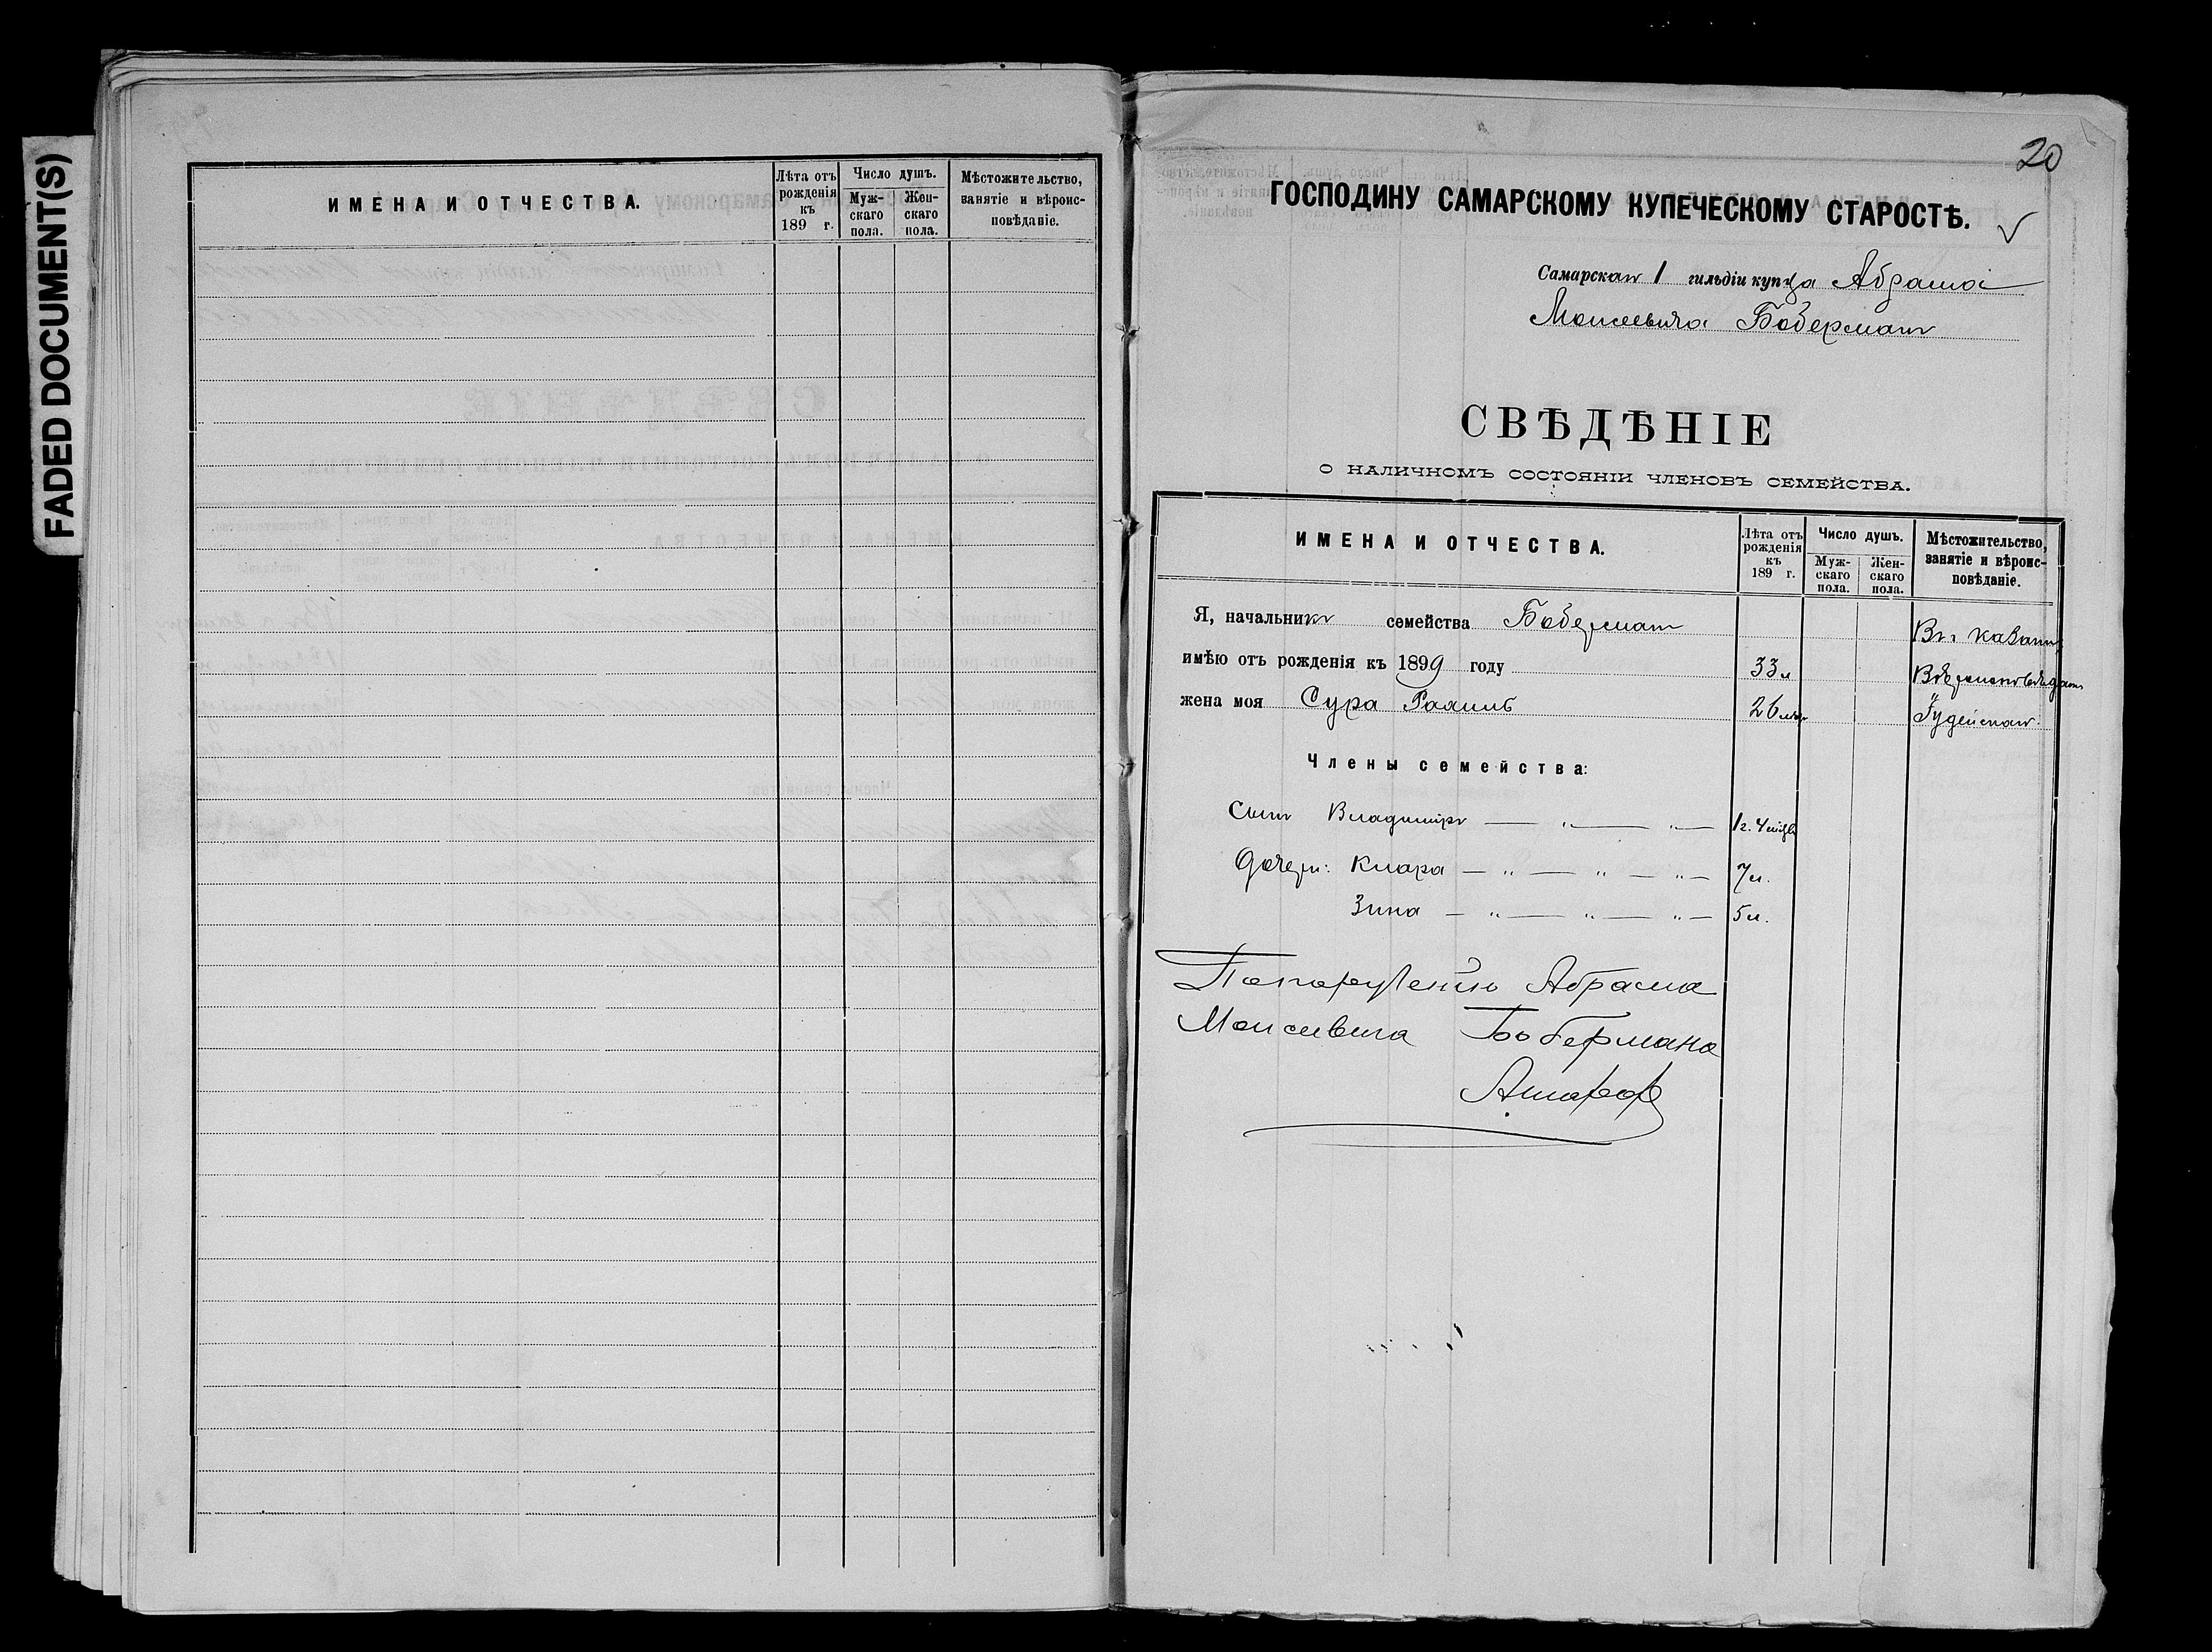 FADED DOCUMENT(S)
ИМЕНА И ОТЧЕСТВА.
Лѣта отъ рожденія къ 189 г.
Число душъ.
Мужскаго пола.
Женскаго пола.
Мѣстожительство, занятіе и вѣроисповѣданіе.
20
ГОСПОДИНУ САМАРСКОМУ КУПЕЧЕСКОМУ СТАРОСТѢ.
Самарскаго 1 гильдіи купца Абрама
Моисеевича Боберманъ
СВѢДѢНІЕ
О НАЛИЧНОМЪ СОСТОЯНІИ ЧЛЕНОВЪ СЕМЕЙСТВА.
ИМЕНА И ОТЧЕСТВА.
Лѣта отъ рожденія къ 189 г.
Число душъ.
Мужскаго пола.
Женскаго пола.
Мѣстожительство, занятіе и вѣроисповѣданіе.
Я, начальникъ семейства Боберманъ
имѣю отъ рожденія къ 1899 году 33 л
жена моя Сура 26
Члены семейства:
Сынъ Владимiръ — „ — „ — 1 г. 4
Дочери: Клара — „ — „ — „ — 7 л.
Зина — „ — „ — „ — 5 л.
По порученію Абрама
Моисеевича Бобермана